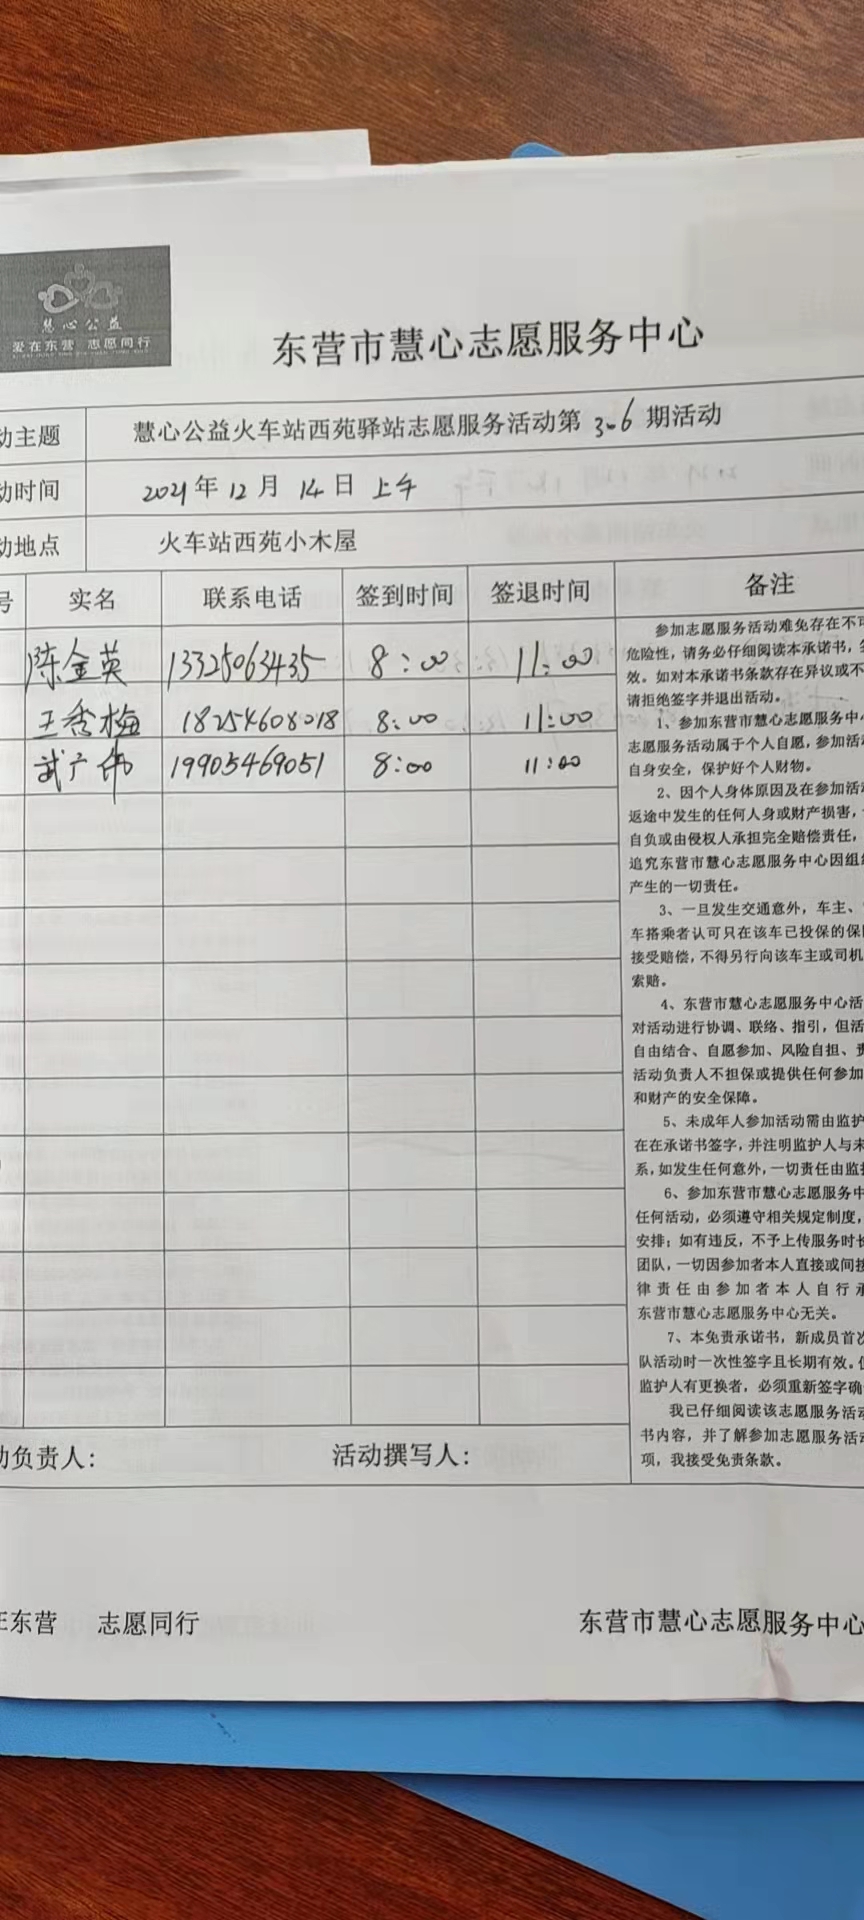 慧心公益
爱在东营 志愿同行
东营市慧心志愿服务中心
动主题 慧心公益火车站西苑驿站志愿服务活动第306期活动
动时间 2021年12月14日 上午
动地点 火车站西苑小木屋
号 实名 联系电话 签到时间 签退时间 备注
陈金英 13325063435 8:00 11:00
王秀梅 18254608018 8:00 11:00
武广伟 19905469051 8:00 11:00
参加志愿服务活动难免存在不可
危险性，请务必仔细阅读本承诺书，
效。如对本承诺书条款存在异议或不
请拒绝签字并退出活动。
1、参加东营市慧心志愿服务中心
志愿服务活动属于个人自愿，参加活动
自身安全，保护好个人财物。
2、因个人身体原因及在参加活动
返途中发生的任何人身或财产损害，
自负或由侵权人承担完全赔偿责任，
追究东营市慧心志愿服务中心因组织
产生的一切责任。
3、一旦发生交通意外，车主、
车搭乘者认可只在该车已投保的保
接受赔偿，不得另行向该车主或司机
索赔。
4、东营市慧心志愿服务中心活
对活动进行协调、联络、指引，但活
自由结合、自愿参加、风险自担、责
活动负责人不担保或提供任何参加
和财产的安全保障。
5、未成年人参加活动需由监护
在在承诺书签字，并注明监护人与未
系，如发生任何意外，一切责任由监护
6、参加东营市慧心志愿服务中
任何活动，必须遵守相关规定制度，
安排；如有违反，不予上传服务时长
团队，一切因参加者本人直接或间接
律责任由参加者本人自行承
东营市慧心志愿服务中心无关。
7、本免责承诺书，新成员首次
队活动时一次性签字且长期有效。但
监护人有更换者，必须重新签字确
我已仔细阅读该志愿服务活动
书内容，并了解参加志愿服务活动
项，我接受免责条款。
动负责人： 活动撰写人：
在东营 志愿同行 东营市慧心志愿服务中心